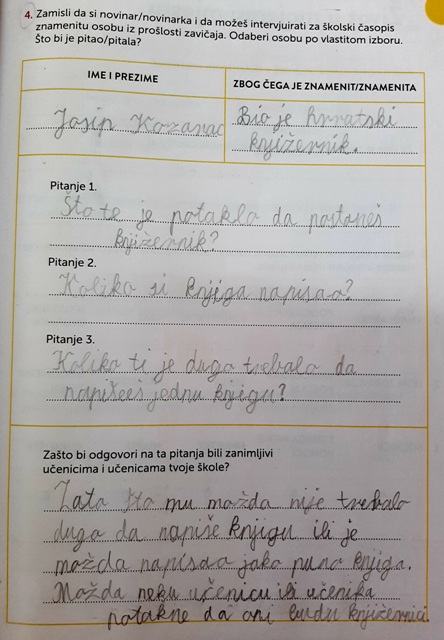 4. Zamisli da si novinar/novinarka i da možeš intervjuirati za školski časopis
znamenitu osobu iz prošlosti zavičaja. Odaberi osobu po vlastitom izboru.
Što bi je pitao/pitala?
IME I PREZIME
ZBOG ČEGA JE ZNAMENIT/ZNAMENITA
Josip Kozarac
Bio je hrvatski
književnik.
Pitanje 1.
Što te je potaklo da postaneš
književnik?
Pitanje 2.
Koliko si knjiga napisao?
Pitanje 3.
Koliko ti je dugo trebalo da
napišeš jednu knjigu?
Zašto bi odgovori na ta pitanja bili zanimljivi
učenicima i učenicama tvoje škole?
Zato što mu možda nije trebalo
dugo da napiše knjigu ili je
možda napisao jako puno knjiga.
Možda neku učenicu ili učenika
potakne da oni budu književnici.